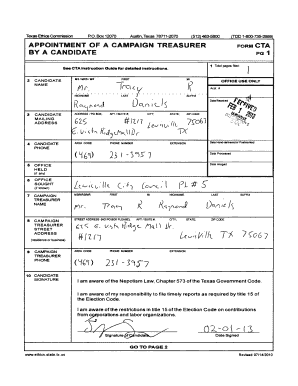 Texas Ethics Commission P.O. Box 12070 Austin, Texas 78711-2070 (512) 463-5800 (TDD 1-800-735-2989)
APPOINTMENT OF A CAMPAIGN TREASURER BY A CANDIDATE
FORM CTA
PG 1
See CTA Instruction Guide for detailed instructions.
1 Total pages filed:
2 CANDIDATE NAME
MS / MRS / MR FIRST MI
Mr. Tracy R
NICKNAME LAST SUFFIX
Raymond Daniels
OFFICE USE ONLY
Date Received
3 CANDIDATE MAILING ADDRESS
ADDRESS / PO BOX; APT / SUITE #; CITY; STATE; ZIP CODE
625 #1217 Lewisville 75067
E. Vista Ridge Mall Dr TX
4 CANDIDATE PHONE
AREA CODE PHONE NUMBER EXTENSION
(469) 231-3957
Date Hand-delivered or Postmarked
Date Processed
Date Imaged
5 OFFICE HELD (if any)
6 OFFICE SOUGHT (if known)
Lewisville City Council PL # 5
7 CAMPAIGN TREASURER NAME
MS/MRS/MR FIRST MI NICKNAME LAST SUFFIX
Mr Tracy R Raymond Daniels
8 CAMPAIGN TREASURER STREET ADDRESS
(residence or business)
STREET ADDRESS (NO PO BOX PLEASE); APT / SUITE #; CITY; STATE; ZIP CODE
625 E. Vista Ridge Mall Dr
#1217 Lewisville TX 75067
9 CAMPAIGN TREASURER PHONE
AREA CODE PHONE NUMBER EXTENSION
(469) 231-3957
10 CANDIDATE SIGNATURE
I am aware of the Nepotism Law, Chapter 573 of the Texas Government Code.
I am aware of my responsibility to file timely reports as required by title 15 of the Election Code.
I am aware of the restrictions in title 15 of the Election Code on contributions from corporations and labor organizations.
02-01-13
Signature of Candidate Date Signed
GO TO PAGE 2
www.ethics.state.tx.us Revised 07/14/2010